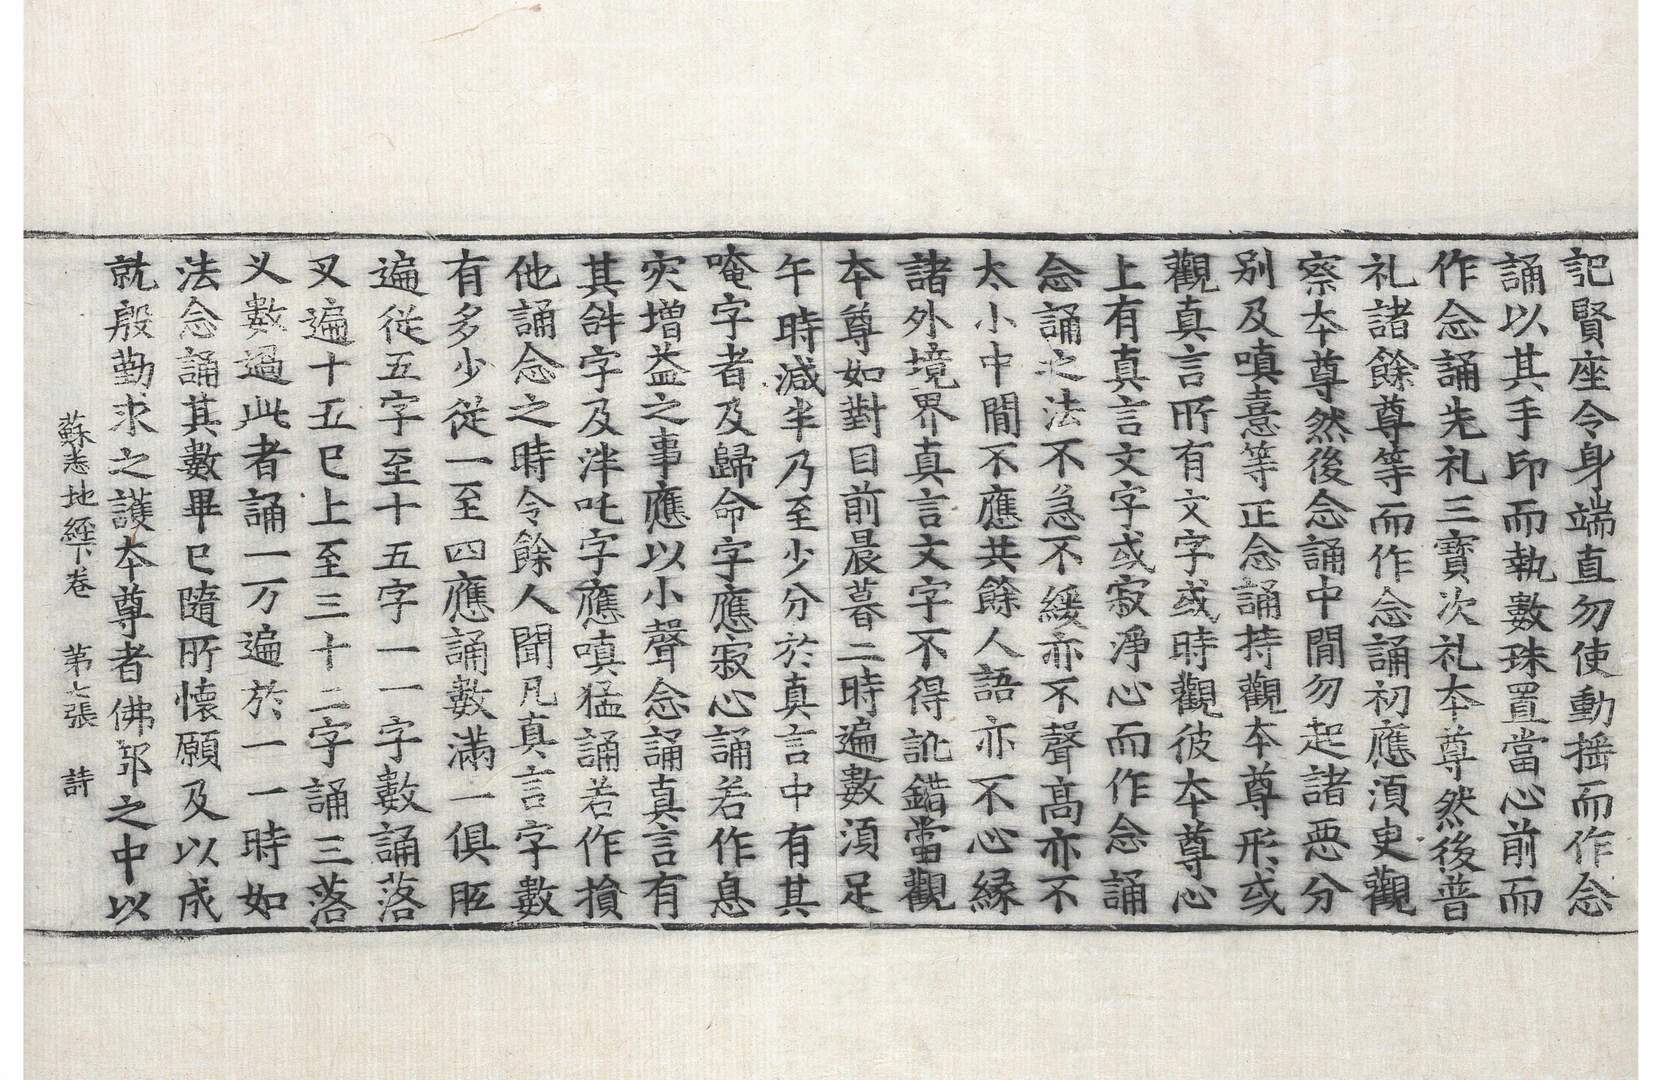 記賢座令身端直勿使動揺而作念
誦以其手印而執數珠置當心前而
作念誦先礼三寳次礼夲尊然後普
礼諸餘尊等而作念誦初應湏史觀
察夲尊然後念誦中間勿起諸恶分
別及嗔憙等正念誦持觀夲尊形或
觀真言所有文字或時觀彼夲尊心
上有真言文字或寂淨心而作念誦
念誦之法不急不緩亦不聲髙亦不
太小中間不應共餘人語亦不心緣
諸外境界真言文字不得訛錯當觀
夲尊如對目前晨暮二時遍數湏足
午時減半乃至少分於真言中有其
唵字者及歸命字應寂心誦若作息
灾增益之事應以小聲念誦真言有
其𤙖字及泮吒字應嗔猛誦若作損
他誦念之時令餘人聞凡真言字數
有多少從一至四應誦數滿一俱胝
遍從五字至十五字一一字數誦落
叉遍十五已上至三十二字誦三落
义數過此者誦一万遍於一一時如
法念誦其數畢已隨所懷願及以成
就殷勤求之護夲尊者佛部之中以
蘇悉地經下卷 第七張 詩